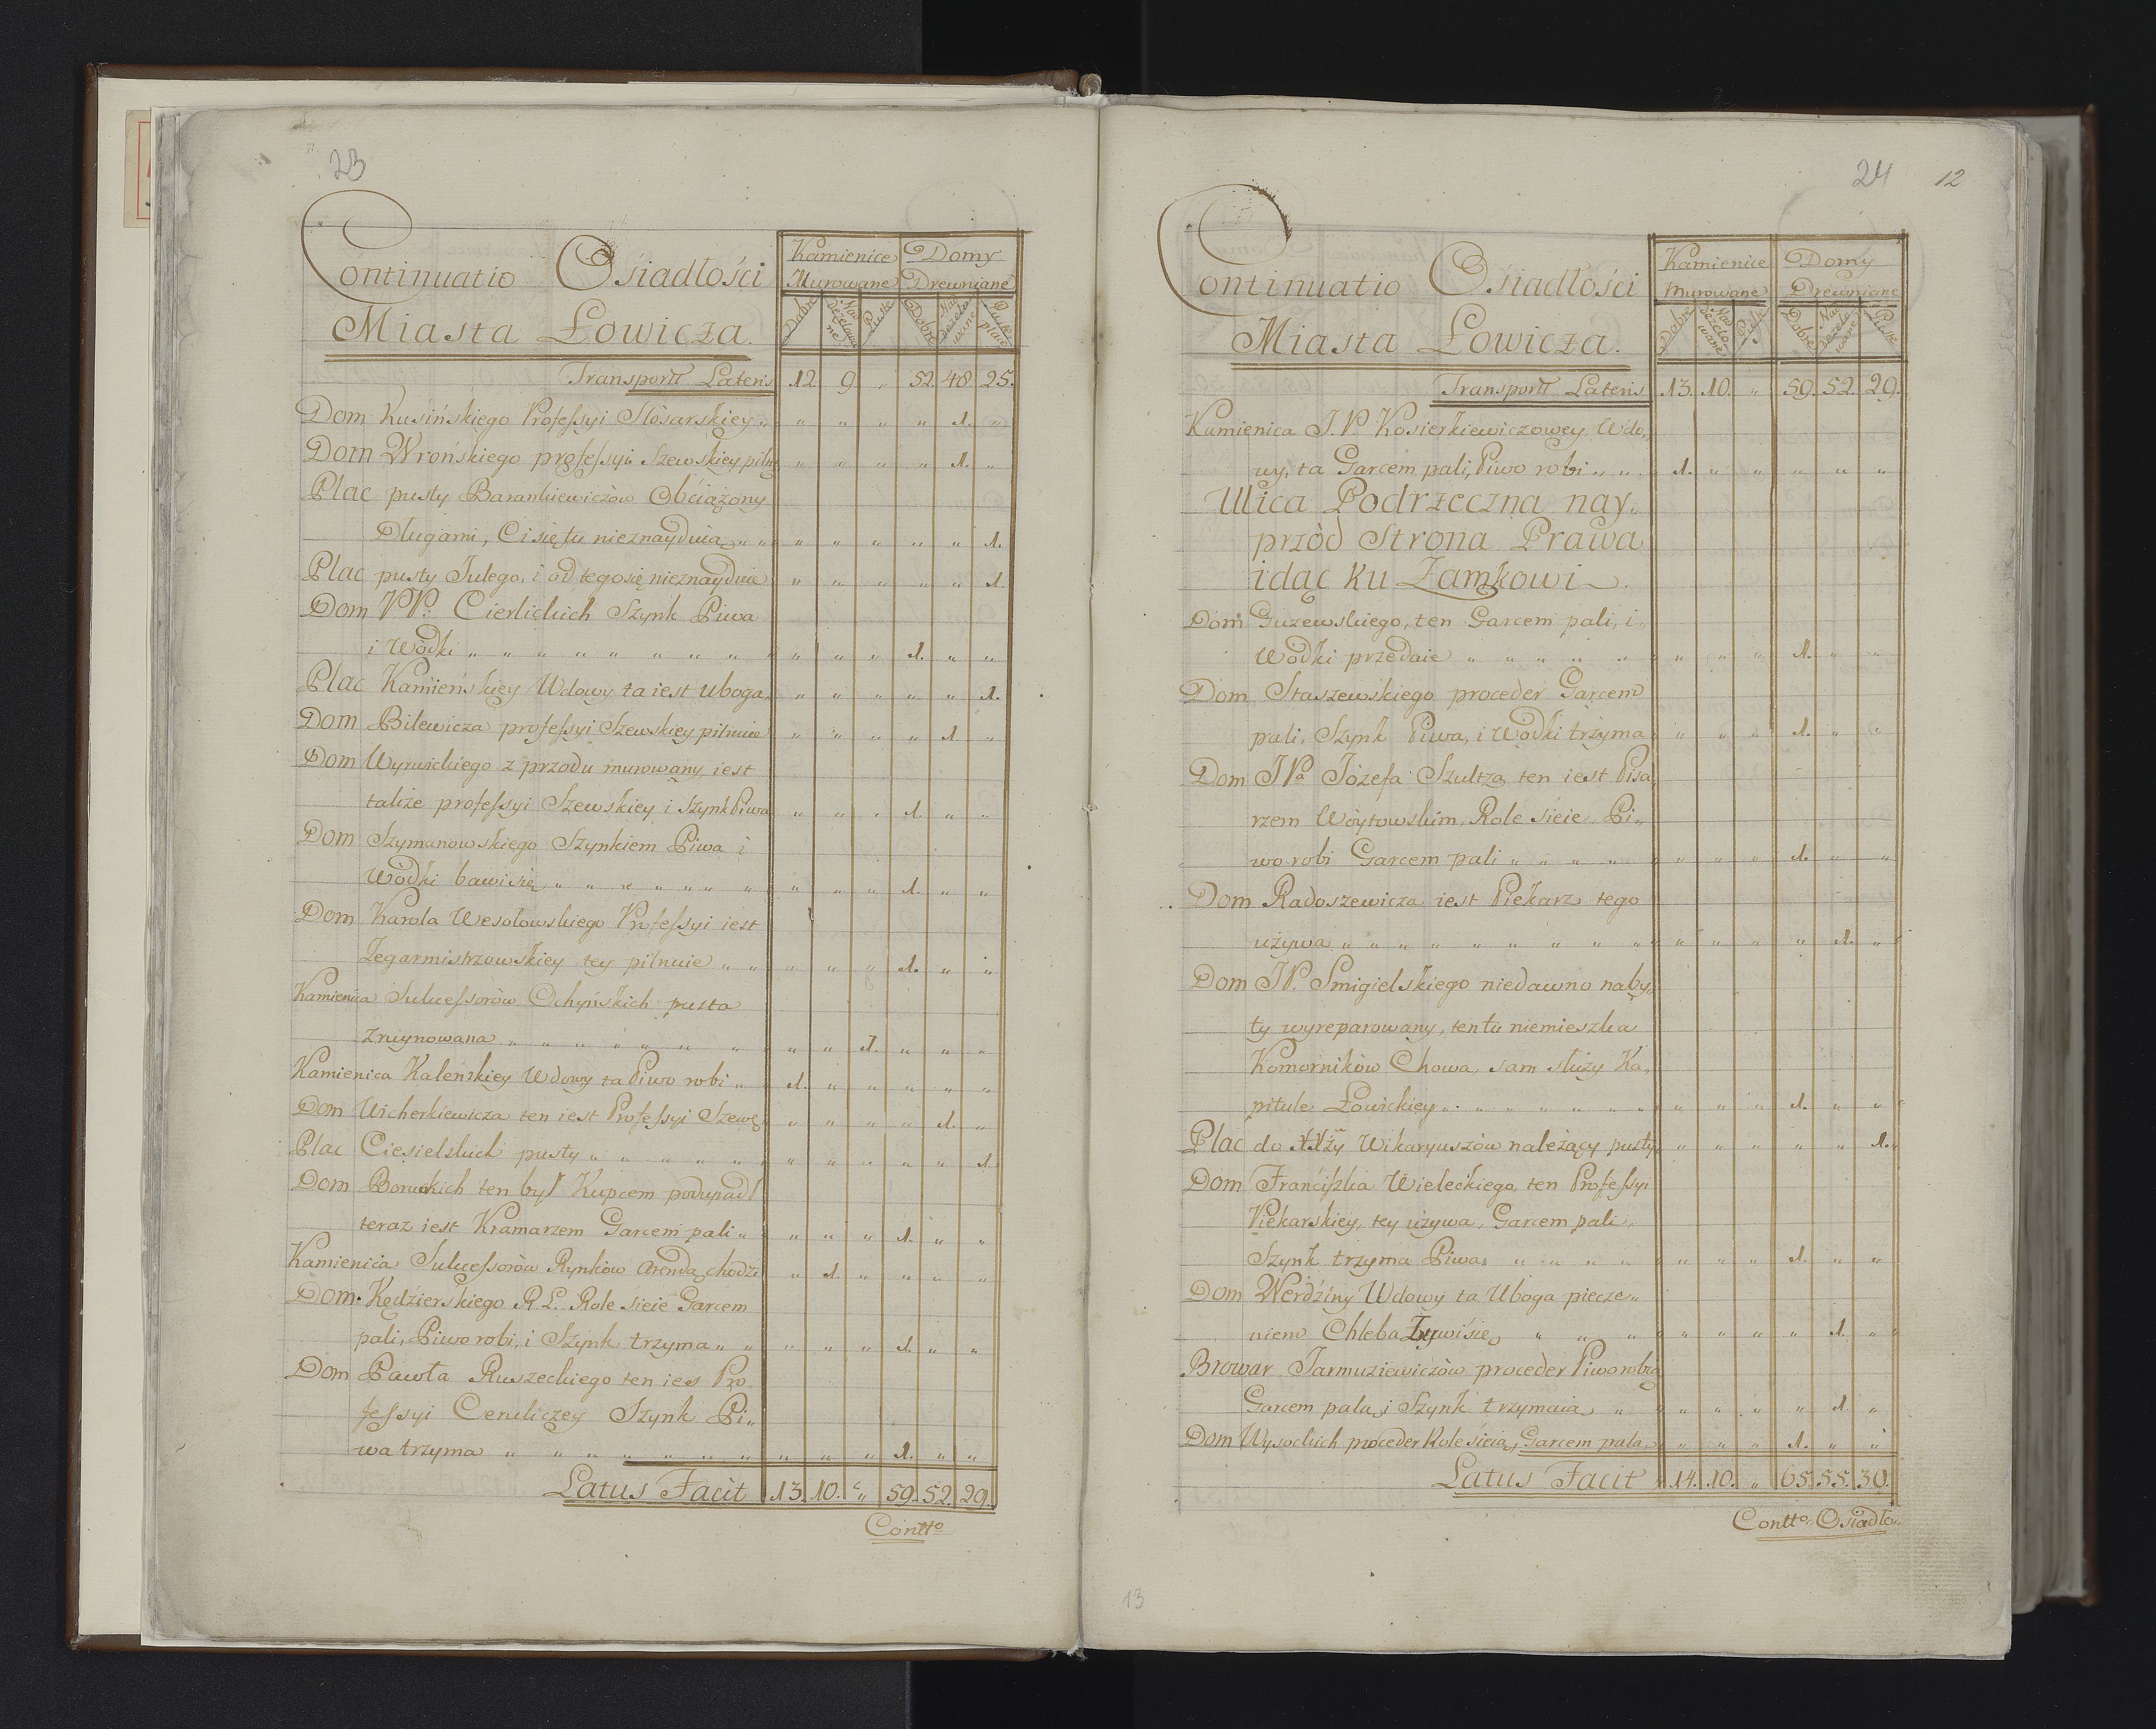 23
Continuatio Osiadłości
Miasta Łowicza.
Kamienice Murowane
Domy Drewniane
Dobre
Nad dezelowane
Puste
Dobre
Nad dezelowane
Puste place
Transportt Lateris 12. 9. „ 52. 48. 25.
Dom Kusińskiego Professyi Slósarskiey „ „ „ „ „ 1. „
Dom Wrońskiego professyi Szewskiey pilnu „ „ „ „ 1. „
Plac pusty Barankiewiczów Obciążony
Długami, Ci się tu nieznayduią „ „ „ „ „ „ 1.
Plac pusty Julego, i od tego się nieznayduie „ „ „ „ „ 1.
Dom PP. Cierlickich Szynk Piwa
i Wódki „ „ „ „ „ „ „ „ „ „ „ 1. „ „
Plac Kamieńskiey Wdowy ta iest uboga „ „ „ „ „ 1.
Dom Bilewicza professyi Szewskiey pilnuie „ „ „ „ 1. „
Dom Wyrwickiego z przodu murowany iest
także professyi Szewskiey i Szynk Piwa „ „ „ 1. „ „
Dom Szymanowskiego Szynkiem Piwa i
Wódki bawi się „ „ „ „ „ „ „ „ „ „ 1. „ „
Dom Karola Wesołowskiego Professyi iest
Zegarmistrzowskiey tey pilnuie „ „ „ „ „ 1. „ „
Kamienica Sukcessorów Ochyńskich pusta
zruynowana „ „ „ „ „ „ „ „ „ 1. „ „ „
Kamienica Kaleńskiey Wdowy ta Piwo robi „ 1. „ „ „ „ „
Dom Wicherkiewicza ten iest Professyi Szewc „ „ „ „ 1. „
Plac Ciesielskich pusty „ „ „ „ „ „ „ „ „ „ 1.
Dom Boruckich ten był Kupcem podupadł
teraz iest Kramarzem Garcem pali „ „ „ „ 1. „ „
Kamienica Sukcessorów Rynków Arendą chodzi „ 1. „ „ „ „
Dom Kędzierskiego R. L. Role sieie Garcem
pali, Piwo robi, i Szynk trzyma „ „ „ „ „ 1. „ „
Dom Pawła Ruszeckiego ten ies Pro
fessyi Ceruliczey Szynk Pi„
wa trzyma „ „ „ „ „ „ „ „ „ „ 1. „ „
Latus Facit 13. 10. „ 59. 52. 29.
Contto
24 12
Continuatio Osiadłości
Miasta Łowicza.
Kamienice Murowane
Domy Drewniane
Dobre
Nad dezelowane
Puste
Dobre
Nad dezelowane
Puste
Transportt Lateris 13. 10. „ 59. 52. 29.
Kamienica J. P. Kosierkiewiczowey Wdo„
wy, ta Garcem pali, Piwo robi „ „ 1. „ „ „ „ „
Ulica Podrzeczna nay„
przód Strona Prawa
idąc ku Zamkowi
Dom Guzewskiego, ten Garcem pali, i„
Wodki przedaie „ „ „ „ „ „ „ „ 1. „ „
Dom Staszewskiego proceder Garcem
pali, Szynk Piwa, i Wódki trzyma „ „ „ 1. „ „
Dom JPa Józefa Szultza ten iest Pisa„
rzem Wóytowskim, Role sieie Pi„
wo robi Garcem pali „ „ „ „ „ „ „ 1. „ „
Dom Radoszewicza iest Piekarz tego
używa „ „ „ „ „ „ „ „ „ „ „ „ 1. „
Dom JP. Smigielskiego niedawno naby„
ty wyreparowany, ten tu niemieszka
Komorników Chowa, sam służy Ka„
pitule Łowickiey „ „ „ „ „ „ „ „ „ 1. „ „
Plac do XXży Wikaryuszów należący pusty „ „ „ „ „ 1.
Dom Franciszka Wieleckiego, ten Professyi
Piekarskiey, tey używa, Garcem pali„
Szynk trzyma Piwa „ „ „ „ „ „ „ 1. „ „
Dom Werdziny Wdowy ta Uboga piecze„
niem Chleba Żywi się „ „ „ „ „ „ „ 1. „
Browar Jarmuziewiczów proceder Piwo robią
Garcem palą, i Szynk trzymaią „ „ „ „ „ „ 1. „
Dom Wysockich proceder Role sieią, Garcem palą „ „ „ 1. „ „
Latus Facit 14. 10. „ 65. 55. 30.
Contto Osiadło„
13